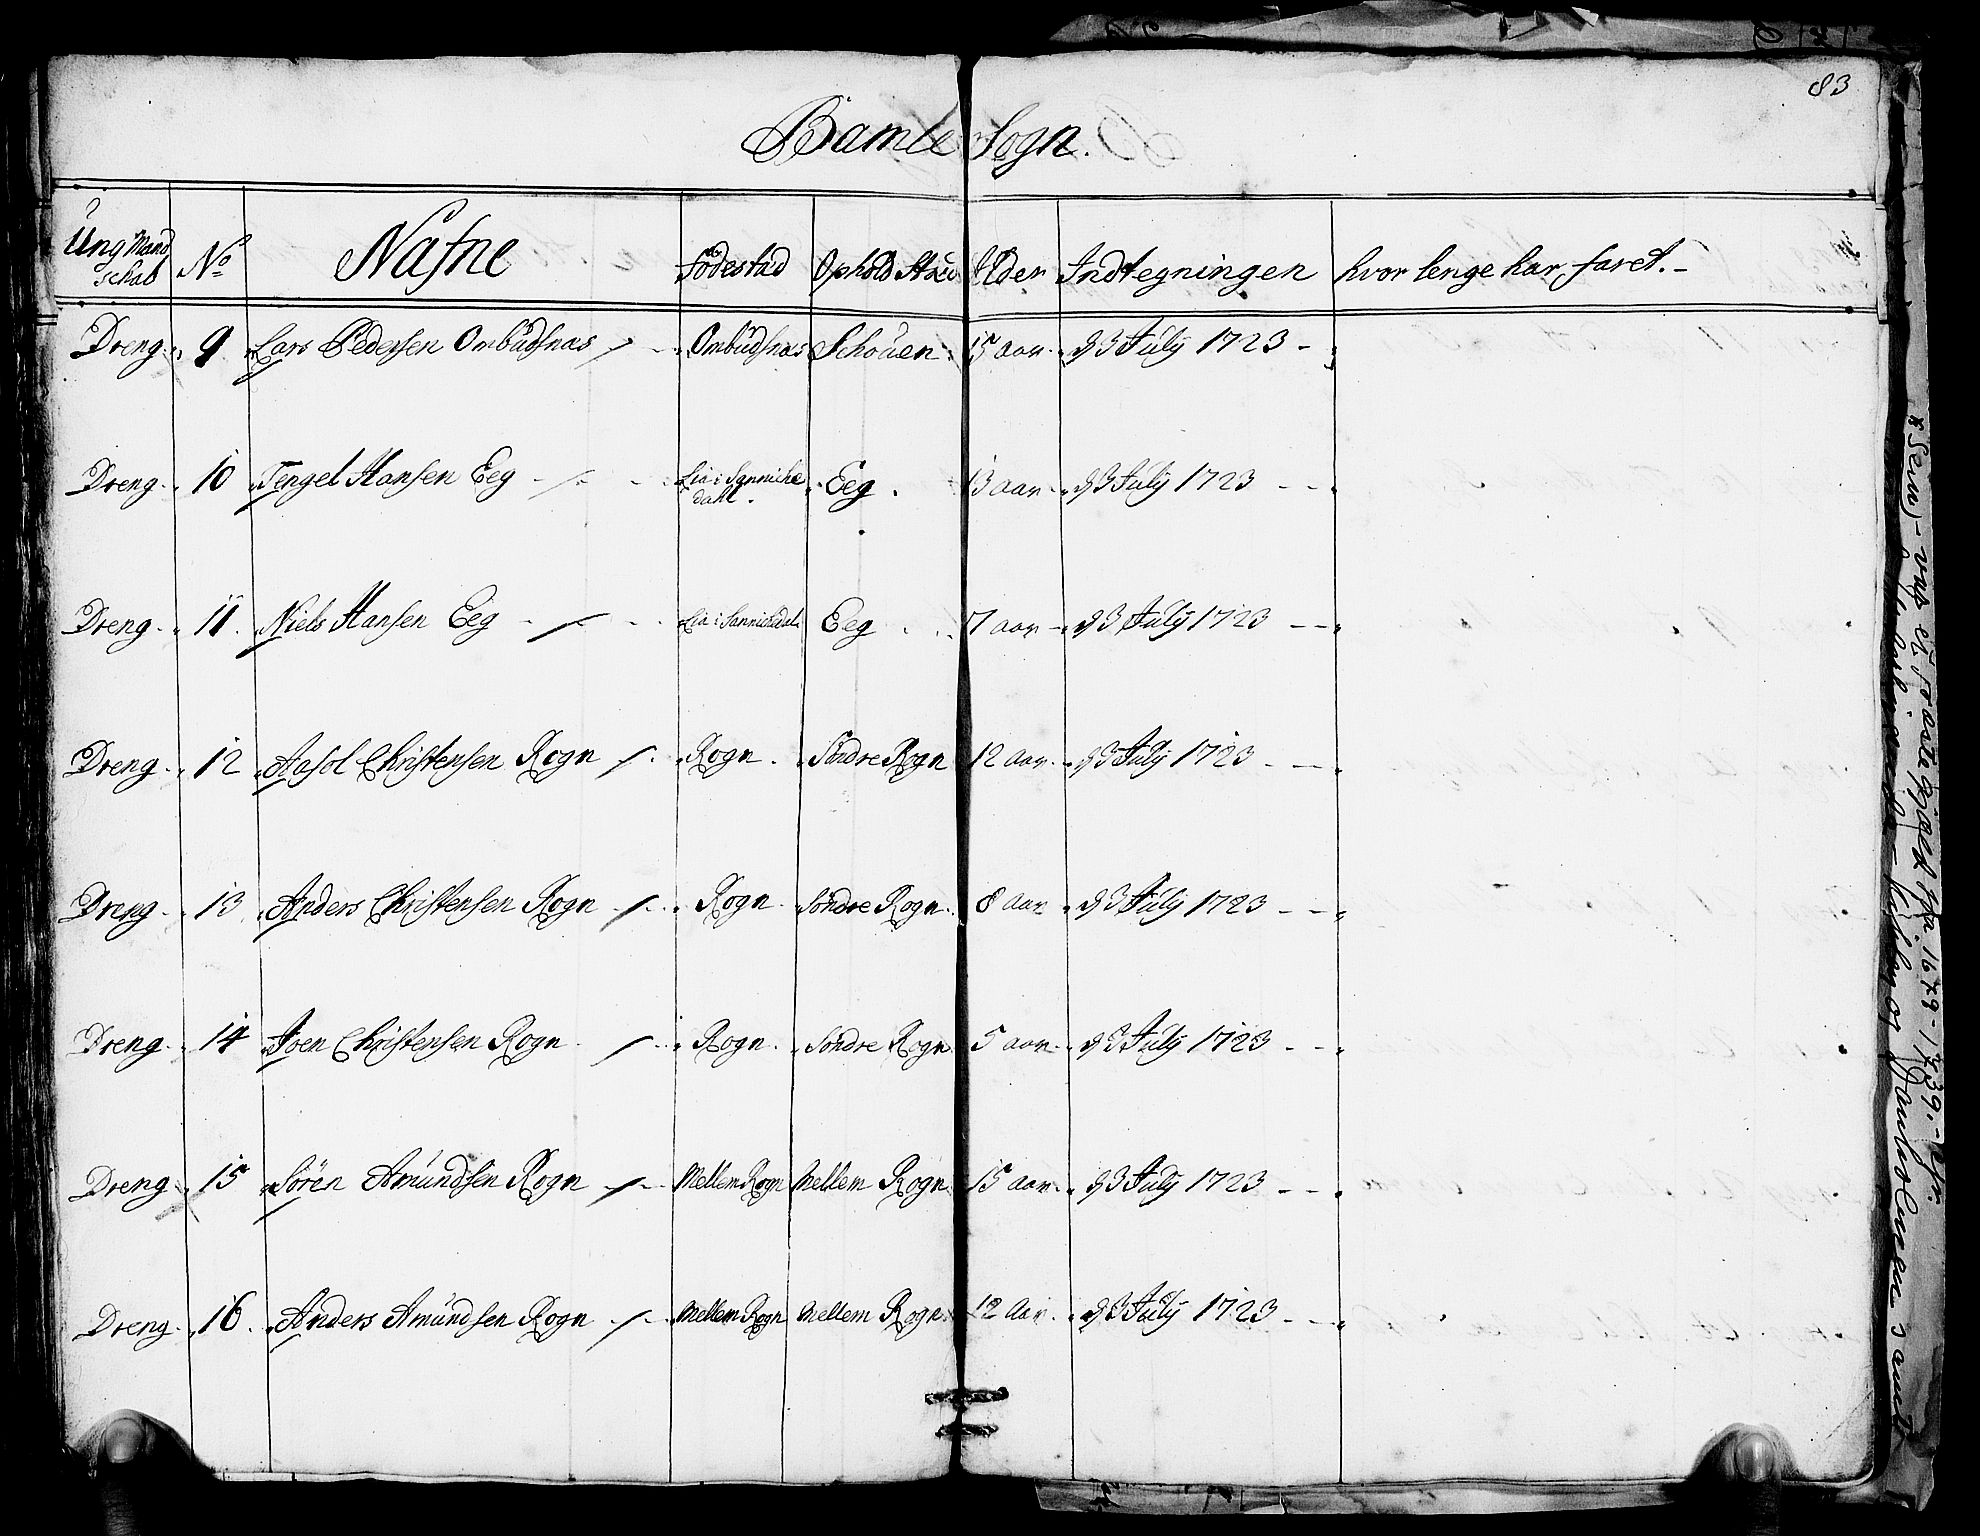 83
Bamle Sogn.
Ung Mand schab No Nafne Födestad Ophold Stæd Alder Indtegningen hvor lenge har faret.-
Dreng 9 Lars Pedersen Ombudsnas Ombudsnas Schouen 15 aar d 3 July 1723
Dreng 10 Tengel Hansen Eeg Lia i Sanniche dahl. Eeg. 13 aar d 3 July 1723
Dreng 11 Niels Hansen Eeg Lia i Sannichdal Eeg 7 aar d 3 July 1723
Dreng 12 Aasol Christensen Rogn Rogn. Söndre Rogn 12 aar d 3 July 1723
Dreng 13 Anders Christensen Rogn Rogn Söndre Rogn 8 aar d 3 July 1723
Dreng 14 Joen Christensen Rogn Rogn. Söndre Rogn 5 aar d 3 July 1723
Dreng 15 Sören Amundsen Rogn Mellem Rogn Mellem Rogn 15 aar d 3 July 1723
Dreng 16 Anders Amundsen Rogn Mellem Rogn Mellem Rogn 12 Aar d 3 July 1723